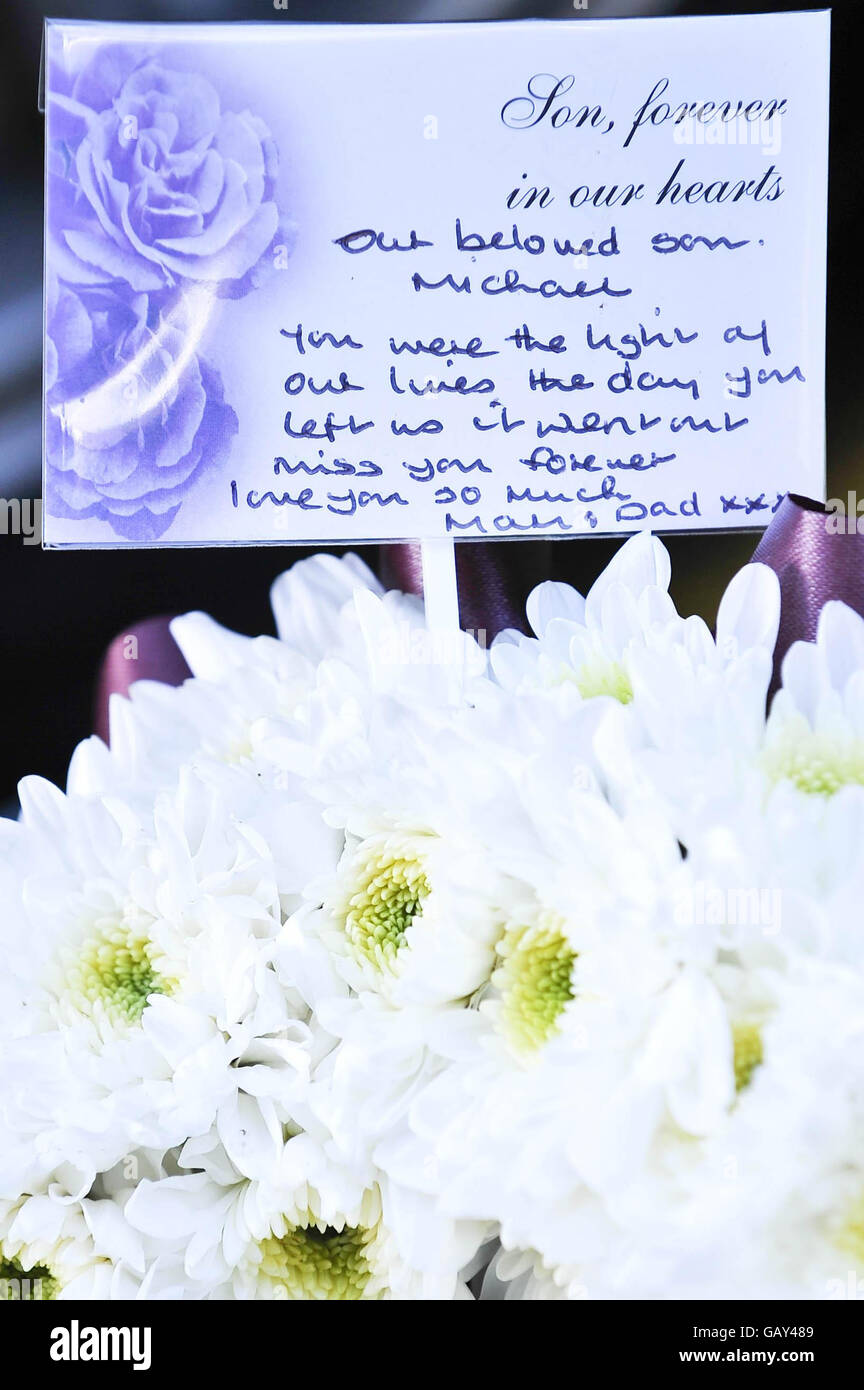 Son, forever
in our hearts
Our beloved son.
Michael
You were the light of
our lives the day you
left us it went out
miss you forever
love you so much
Mam & Dad xxx
alamy
alamy
Image ID: GAY489
www.alamy.com